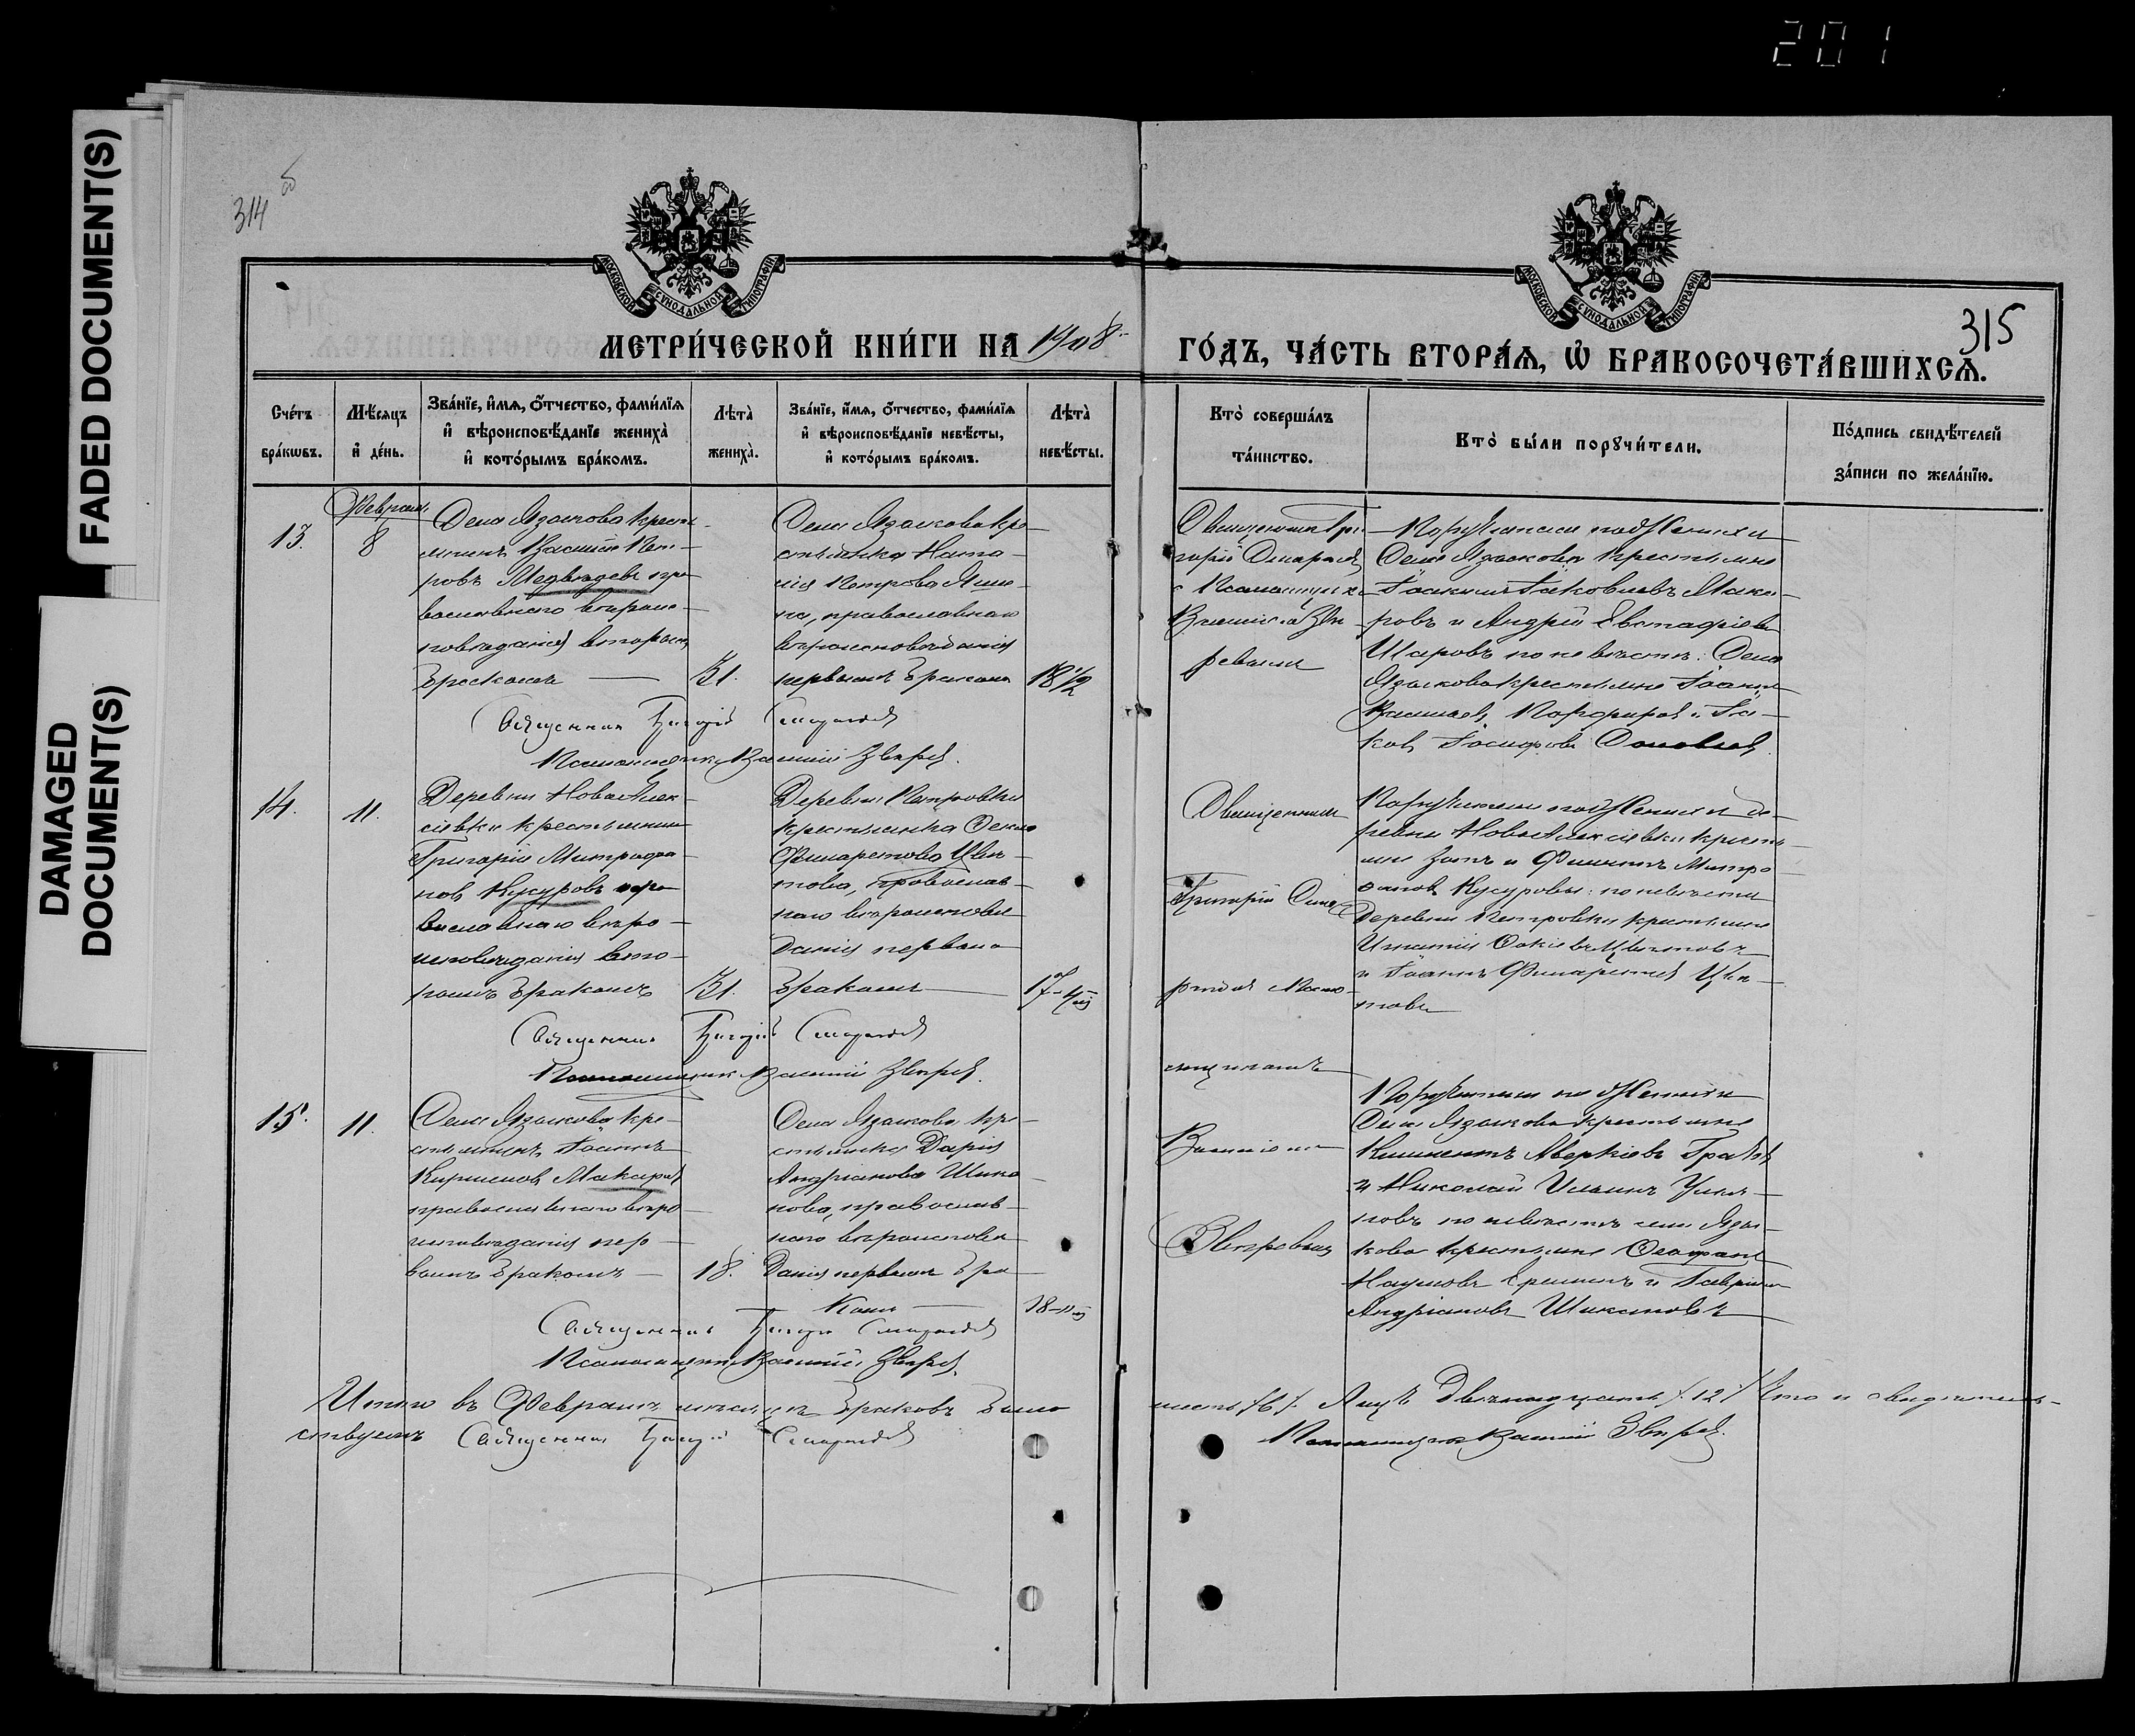 201
FADED DOCUMENT(S)
DAMAGED
DOCUMENT(S)
314 б
315
МОСКОВСКОЙ СУНОДАЛЬНОЙ ТИПОГРАФІИ
МОСКОВСКОЙ СУНОДАЛЬНОЙ ТИПОГРАФІИ
МЕТРИ́ЧЕСКОЙ КНИ́ГИ НА 1908
ГО́ДЪ, ЧА́СТЬ ВТОРА́Ѧ, Ѡ҆ БРАКОСОЧЕТА́ВШИХСѦ.
Сче́тъ бра́кѡвъ.
Мѣ́сяцъ и҆ де́нь.
Зва́нїе, и҆́мѧ, ѻ҆́тчество, фами́лїѧ
и҆ вѣроисповѣ́данїе жениха̀
и҆ кото́рымъ бра́комъ.
Лѣта̀ жениха̀.
Зва́нїе, и҆́мѧ, ѻ҆́тчество, фами́лїѧ
и҆ вѣроисповѣ́данїе невѣ́сты,
и҆ кото́рымъ бра́комъ.
Лѣта̀ невѣ́сты.
Кто̀ соверша́лъ
та́инство.
Кто̀ бы́ли порꙋчи́тели.
По́дпись свидѣ́телей
за́писи по жела́нїю.
13.
Февраль
8
Села Языкова кресть-
янинъ Василій Пет-
ровъ Медвѣдевъ пра-
вославнаго вѣроис-
повѣданія вторымъ
бракомъ
31.
Села Языкова кре-
стьянка Ната-
лія Петрова
на, православнаго
вѣроисповѣданія
первымъ бракомъ
18 1/2
Священникъ Гри-
горій Смарагдовъ
с Псаломщикомъ
Василіемъ Звѣ-
ревымъ
Поручители по женихѣ
Села Языкова крестьяне
Іоакимъ Іаковлевъ Мака-
ровъ и Андрей Евстафіевъ
Шаровъ по невѣстѣ: Села
Языкова крестьяне Іоаннъ
Васильевъ и Іа-
ковъ
Священникъ Григорій Смарагдовъ
Псаломщикъ Василій Звѣревъ.
14.
11.
Деревни НовоАлек-
сѣевки крестьянинъ
Григорій Митрофа-
новъ Кукуровъ пра-
вославнаго вѣро-
исповѣданія вто-
рымъ бракомъ
31.
Деревни Петровки
крестьянка Текла
Филаретова Цвѣ-
това, православ-
наго вѣроисповѣ-
данія первымъ
бракомъ
17
Священникъ
Григорій Смараг-
довъ с Псало-
мщикомъ
Василіемъ
Звѣревымъ
Поручители по женихѣ де-
ревни НовоАлексѣевки крестья-
не и Филиппъ Митро-
фановъ Кукуровы: по невѣстѣ
Деревни Петровки крестьяне
Игнатій Цвѣтовъ
и Іоаннъ Филаретовъ Цвѣ-
товы
Священникъ Григорій Смарагдовъ
Псаломщикъ Василій Звѣревъ.
15.
11.
Села Языкова кре-
стьянинъ Іоаннъ
Кирилловъ Макаровъ
православнаго вѣро-
исповѣданія пер-
вымъ бракомъ
18.
Села Языкова кре-
стьянка Дарія
Андріанова Шика-
нова, православ-
наго вѣроисповѣ-
данія первымъ бра-
комъ
18
Поручители по женихѣ
Села Языкова крестьяне
Климентъ Аверкіевъ
и Николай Ильинъ
по невѣстѣ села Язы-
кова крестьяне Стефанъ
Наумовъ Ереминъ и Гавріилъ
Андріановъ Шикановъ
Священникъ Григорій Смарагдовъ
Псаломщикъ Василій Звѣревъ.
Итого въ Февралѣ мѣсяцѣ браковъ было
шесть /6/. лицъ двѣнадцать /12/ что и свидѣтель-
ствуемъ Священникъ Григорій Смарагдовъ
Псаломщикъ Василій Звѣревъ.